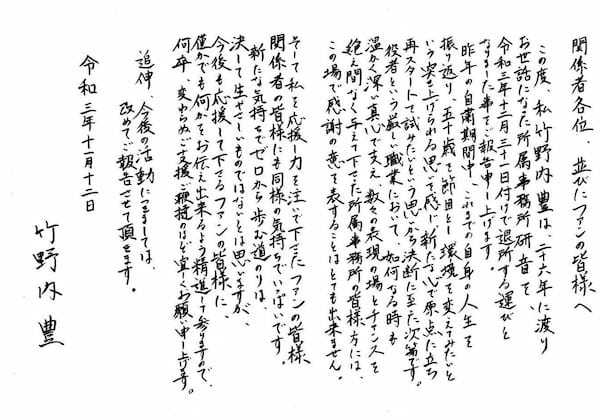 関係者各位、並びにファンの皆様へ
この度、私竹野内豊は、二十六年に渡り
お世話になった所属事務所研音を、
令和三年十二月三十一日付けで退所する運びと
なりました事をご報告申し上げます。
昨年の自粛期間中、これまでの自身の人生を
振り返り、五十歳を節目とし環境を変えてみたいと
いう突き上げられる思いを感じ、新たな心で原点に立ち
再スタートして試みたいという思いから決断に至った次第です。
役者という厳しい職業において、如何なる時も
温かく深い真心で支え、数々の表現の場とチャンスを
絶え間なく与えて下さった所属事務所の皆様方には、
この場で感謝の意を表することはとても出来ません。
そして私を応援し力を注いで下さったファンの皆様、
関係者の皆様にも同様の気持ちでいっぱいです。
新たな気持ちでゼロから歩む道のりは、
決して生やさしいものではないとは思いますが、
今後も応援して下さるファンの皆様に、
僅かでも何かをお伝え出来るよう精進して参りますので、
何卒、変わらぬご支援ご鞭撻のほど宜しくお願い申し上げます。
追伸 今後の活動につきましては、
改めてご報告させて頂きます。
令和三年十一月十二日
竹野内豊